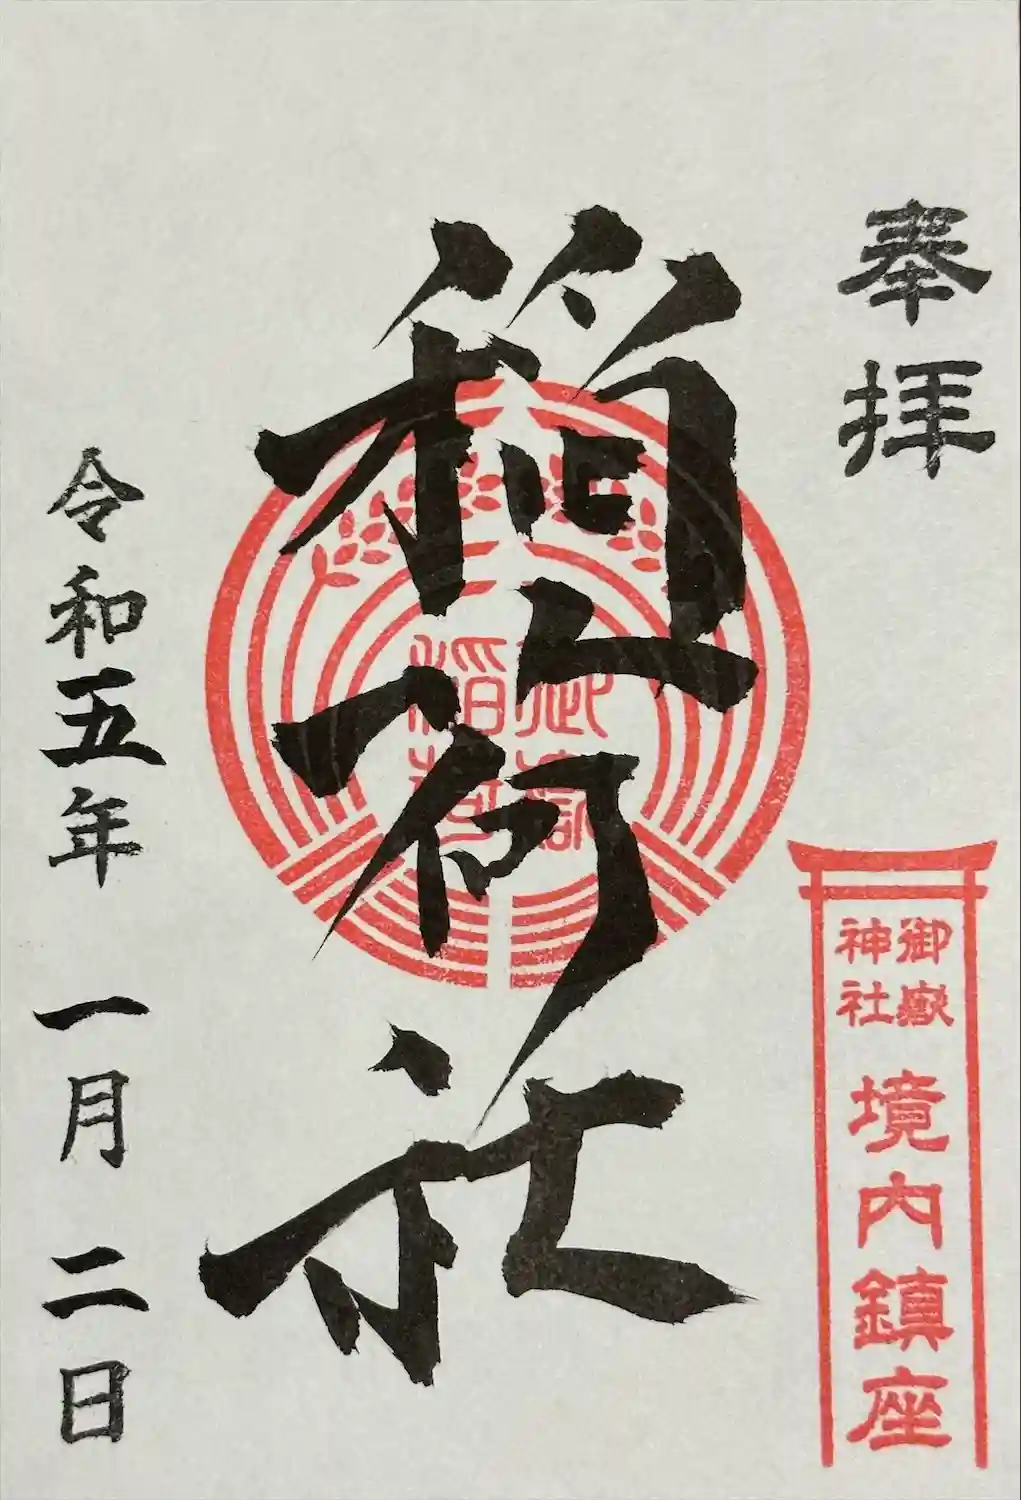 奉拝
御嶽
神社
境内鎮座
稲荷社
御嶽
稲荷
令和五年一月二日